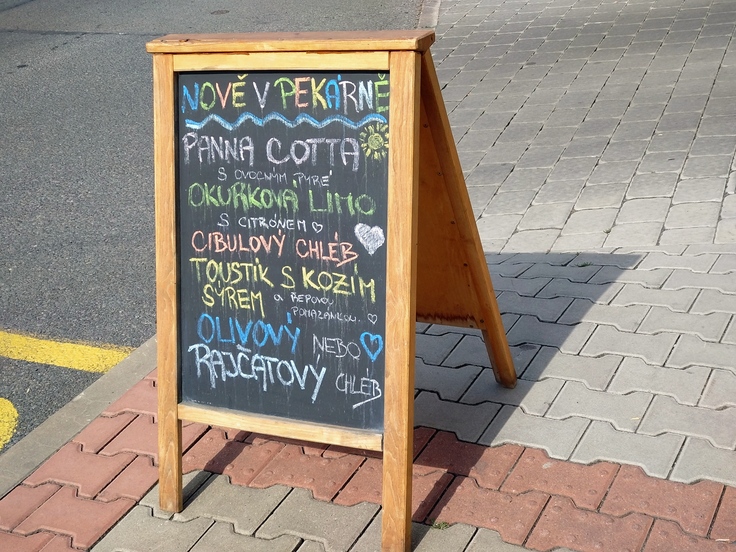 NOVĚ V PEKÁRNĚ
PANNA COTTA
S OVOCNÝM PYRÉ
OKURKOVÁ LIMO
S CITRÓNEM
CIBULOVÝ CHLÉB
TOUSTÍK S KOZÍM
SÝREM A ŘEPOVOU
POMAZÁNKOU.
OLIVOVÝ NEBO
RAJČATOVÝ CHLÉB